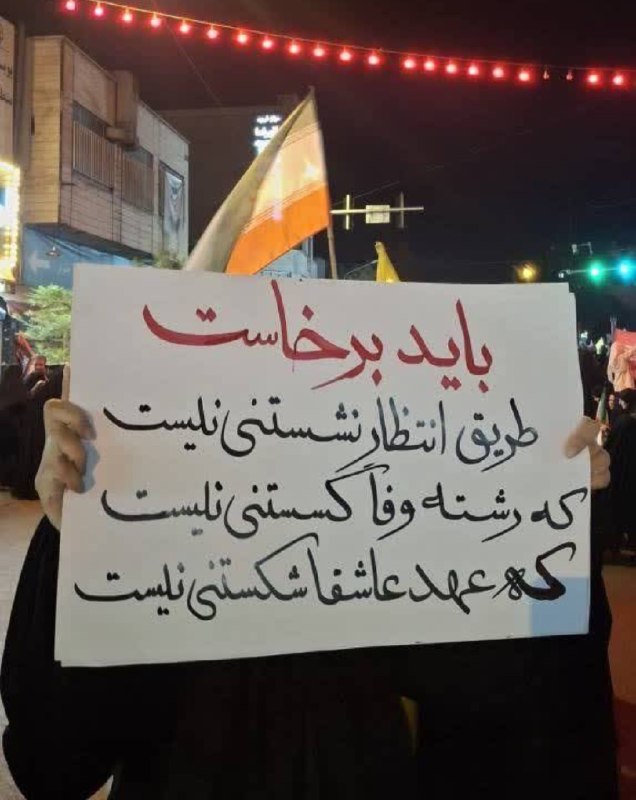 باید برخاست
طریق انتظار نشستنی نیست
که رشته وفا گسستنی نیست
که عهد عاشقا شکستنی نیست